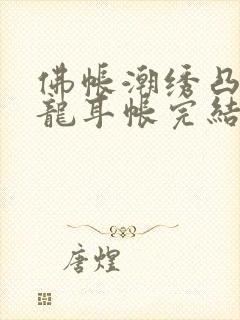 佛帐潮绣凸
龍耳帐完結
唐煌